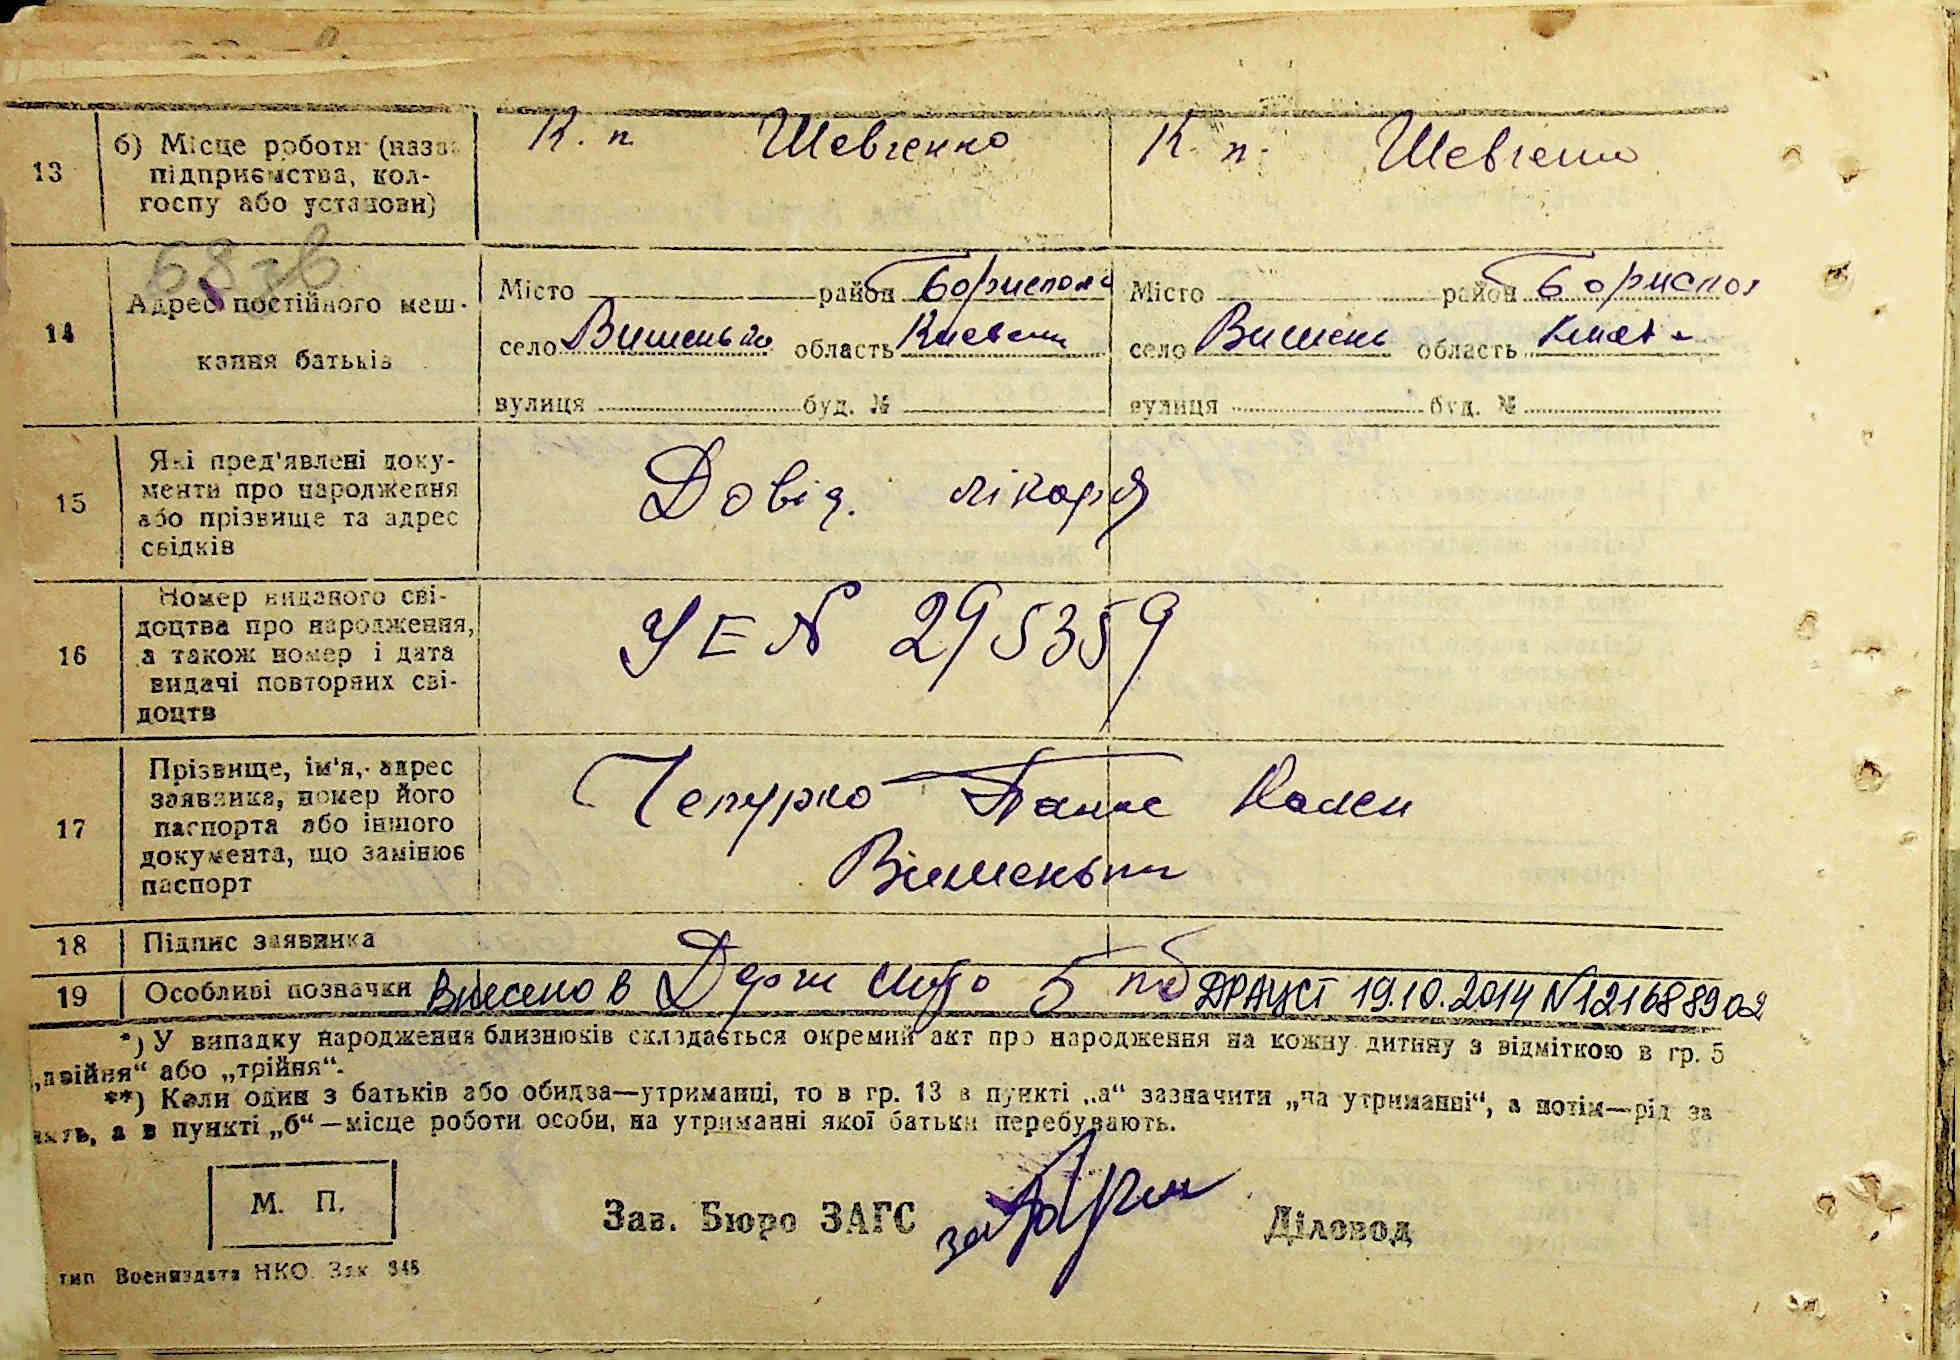 13
б) Місце роботи (назва
підприємства, кол-
госпу або установи)
К. п. Шевченко
К. п. Шевченко
14
Адрес постійного меш-
кання батьків
Місто район Бориспол
село Вишеньки область Киевськ
вулиця буд. №
Місто район Бориспол
село Вишень область
вулиця буд. №
15
Які пред'явлені доку-
менти про народження
або прізвище та адрес
свідків
Довід. лікаря
16
Номер виданого сві-
доцтва про народження,
а також номер і дата
видачі повторних сві-
доцтв
УЕ N 295359
17
Прізвище, ім'я, адрес
заявника, номер його
паспорта або іншого
документа, що замінює
паспорт
Чепурко Панас
Вишеньки
18 Підпис заявника
19 Особливі позначки Внесено в ДРАЦСГ 19.10.2014 N 121688902
*) У випадку народження близнюків складається окремий акт про народження на кожну дитину з відміткою в гр. 5
„двійня“ або „трійня“.
**) Коли один з батьків або обидва—утриманці, то в гр. 13 в пункті „а“ зазначити „на утриманні“, а потім—рід за
а в пункті „б“—місце роботи особи, на утриманні якої батьки перебувають.
М. П.
Зав. Бюро ЗАГС
Діловод
тип Воениздата НКО. Зак 348